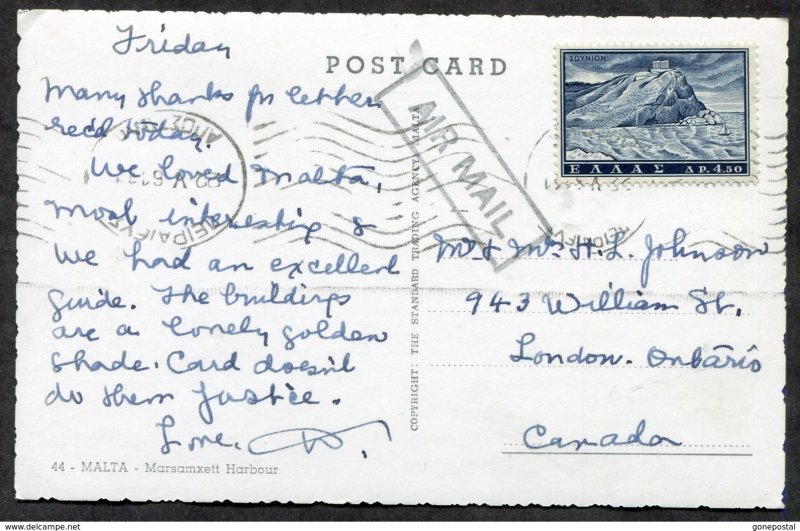 Friday
Many thanks for letter
rec'd today.
We loved Malta,
most interesting &
we had an excellent
guide. The buildings
are a lovely golden
shade. Card doesn't
do them justice.
Love,
44 - MALTA - Marsamxett Harbour
POST CARD
AIR MAIL
COPYRIGHT: THE STANDARD TRADING AGENCY, MALTA
ΣΟΥΝΙΟΝ
ΕΛΛΑΣ ΔΡ. 4.50
Mr & Mrs H.L. Johnson
943 William St.
London. Ontario
Canada
gonepostal